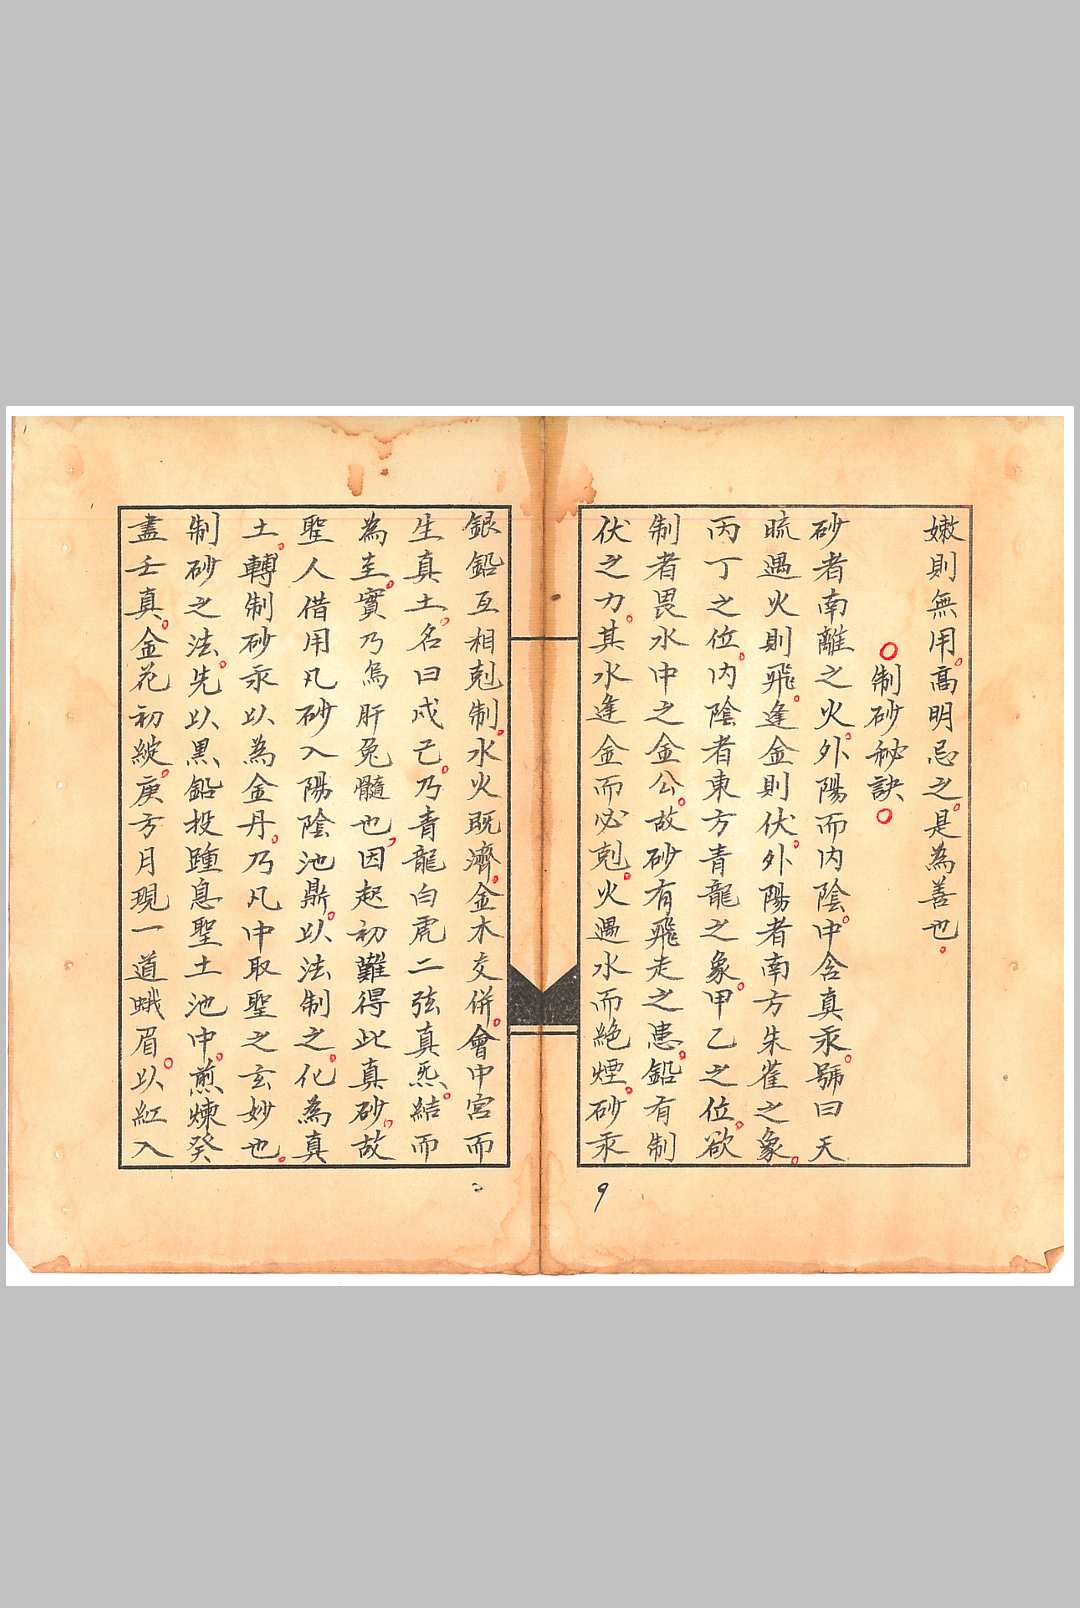 嫩則無用。高明忌之。是為善也。
○制砂秘訣○
砂者南離之火。外陽而内陰。中含真汞。號曰天
硫遇火則飛。逢金則伏。外陽者南方朱雀之象。
丙丁之位。内陰者東方青龍之象。甲乙之位。欲
制者畏水中之金公。故砂有飛走之患。鉛有制
伏之力。其水逢金而必剋。火遇水而絶煙。砂汞
銀鉛互相剋制。水火既濟。金木交併。會中宮而
生真土。名曰戊己。乃青龍白虎二弦真炁。結而
為圭。實乃烏肝兔髓也。因起初難得此真砂。故
聖人借用凡砂入陽陰池鼎。以法制之。化為真
土。轉制砂汞以為金丹。乃凡中取聖之玄妙也。
制砂之法。先以黑鉛投踵息聖土池中。煎煉癸
盡壬真。金花初綻。庚方月現一道蛾眉。以紅入
9